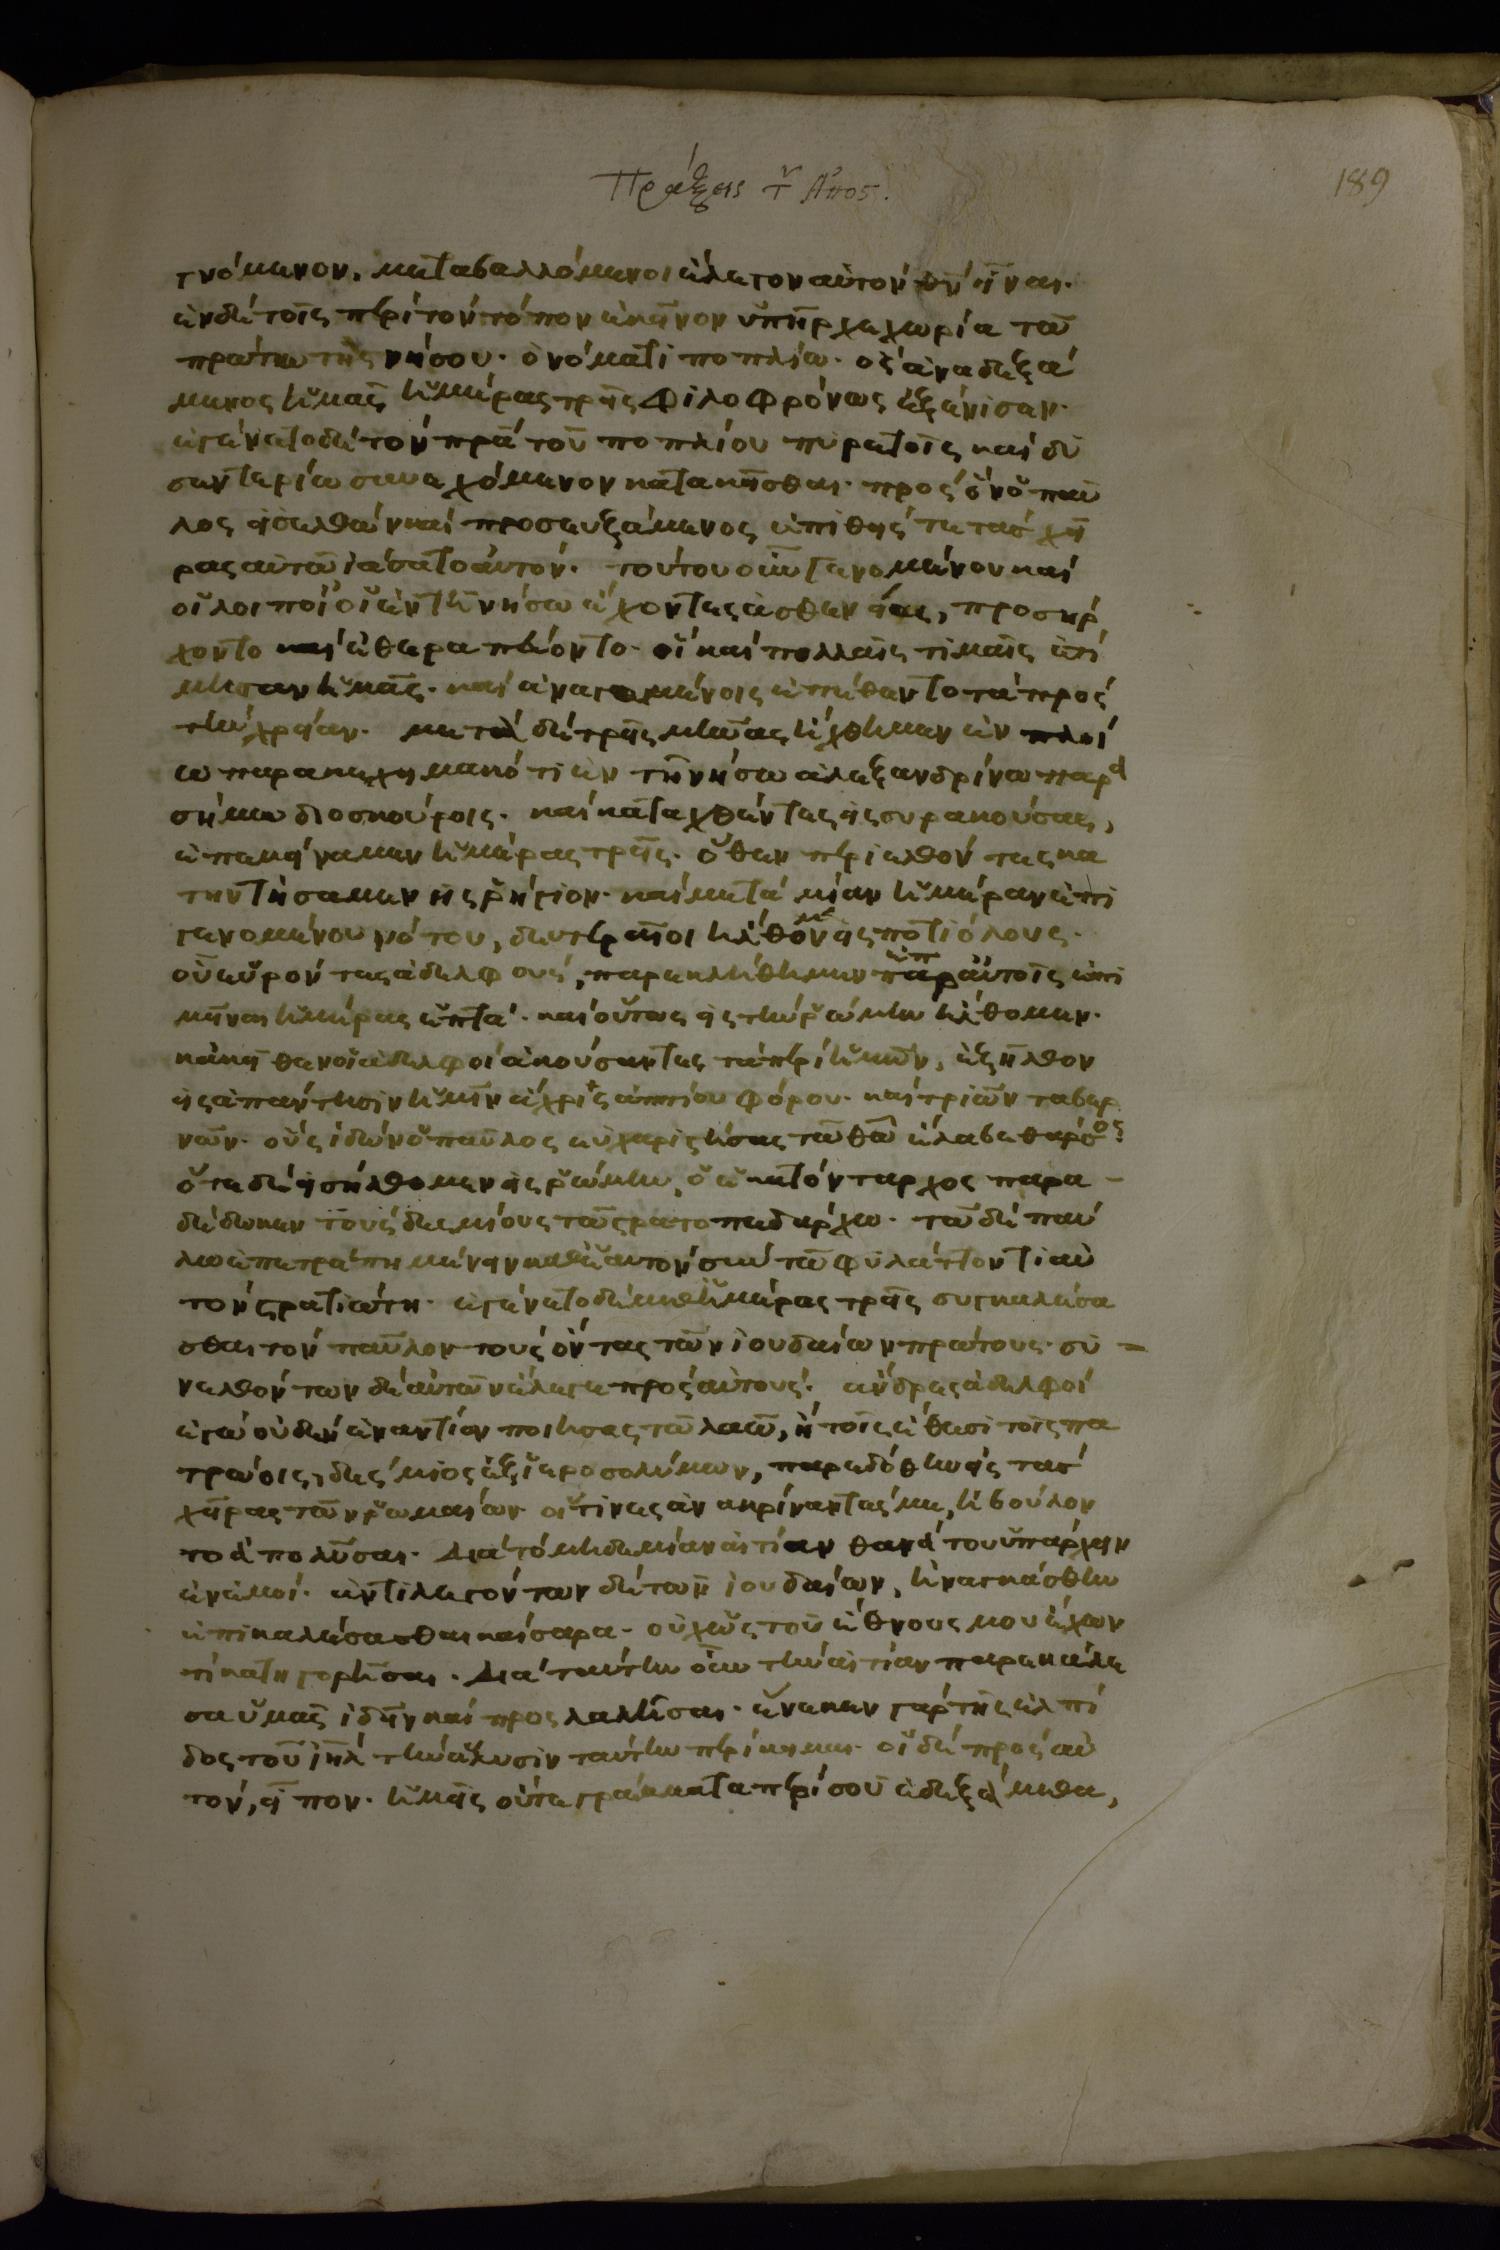 Πράξεις τ Απος.
189
γνόμενον, μεταβαλλόμενοι ἔλεγον αὐτὸν θν̄ εἶναι.
ἐν δὲ τοῖς περὶ τὸν τόπον ἐκεῖνον ὑπῆρχε χωρία τῶ
πρώτω τῆς νήσου· ὀνόματι ποπλίω· ὃς ἀναδεξά
μενος ἡμᾶς ἡμέρας τρεῖς φιλοφρόνως ἐξένισεν·
ἐγένετο δὲ τὸν πρα τοῦ ποπλίου πυρετοῖς καὶ δυ
σεντερία συνεχόμενον κατακεῖσθαι· πρὸς ὃν ὁ παῦ
λος εἰσελθὼν καὶ προσευξάμενος ἐπιθείς τε τὰς χεῖ
ρας αὐτῶ ἰάσατο αὐτόν· τούτου οὖν γενομένου καὶ
οἱ λοιποὶ οἱ ἐν τῆ νήσω ἔχοντες ἀσθενείας, προσήρ
χοντο καὶ ἐθεραπεύοντο· οἳ καὶ πολλαῖς τιμαῖς ἐτί
μησαν ἡμᾶς· καὶ ἀναγομένοις ἐπέθεντο τὰ πρὸς
τὴν χρείαν· μετὰ δὲ τρεῖς μῆνας ἤχθημεν ἐν πλοί
ω παρακεχειμακότι ἐν τῆ νήσω ἀλεξανδρίνω παρα
σήμω διοσκούροις· καὶ καταχθέντες εἰς συρακούσας,
ἐπεμείναμεν ἡμέρας τρεῖς· ὅθεν περιελθόντες κα
τηντήσαμεν εἰς ῥήγιον· καὶ μετὰ μίαν ἡμέραν ἐπι
γενομένου νότου, δευτεραῖοι ἤλθομεν εἰς ποτιόλους·
οὗ εὑρόντες ἀδελφούς, παρεκλήθημεν ἐπ παραὐτοῖς ἐπι
μεῖναι ἡμέρας ἑπτά· καὶ οὕτως εἰς τὴν ῥώμην ἤλθομεν·
κἀκεῖθεν οἱ ἀδελφοὶ ἀκούσαντες τὰ περὶ ἡμῶν, ἐξῆλθον
εἰς ἀπάντησιν ἡμῖν ἄχρις ἀππίου φόρου· καὶ τριῶν ταβερ
νῶν· οὓς ἰδὼν ὁ παῦλος εὐχαριστήσας τῶ θῶ ἔλαβε θάρσος·
ὅτε δὲ εἰσήλθομεν εἰς ῥώμην, ὁ ἑκατόνταρχος παρα
δέδωκεν τοὺς δεσμίους τῶ στρατοπεδάρχω· τῶ δὲ παύ
λω ἐπετράπη μένειν καθ' ἑαυτὸν σὺν τῶ φυλάττοντι αὐ
τὸν στρατιώτη· ἐγένετο δὲ μεθ' ἡμέρας τρεῖς συγκαλέσα
σθαι τὸν παῦλον τοὺς ὄντας τῶν ἰουδαίων πρώτους· συ
νελθόντων δὲ αὐτῶν ἔλεγε πρὸς αὐτούς· ἄνδρες ἀδελφοί
ἐγὼ οὐδὲν ἐναντίον ποιήσας τῶ λαῶ, ἢ τοῖς ἔθεσι τοῖς πα
τρώοις, δέσμιος ἐξ ἱεροσολύμων, παρεδόθην εἰς τὰς
χεῖρας τῶν ῥωμαίων· οἵτινες ἀνακρίναντές με, ἠβούλον
το ἀπολῦσαι· διὰ τὸ μηδεμίαν αἰτίαν θανάτου ὑπάρχειν
ἐν ἐμοί· ἀντιλεγόντων δὲ τῶν ἰουδαίων, ἠναγκάσθην
ἐπικαλέσασθαι καίσαρα· οὐχ ὡς τοῦ ἔθνους μου ἔχων
τί κατηγορῆσαι· διὰ ταύτην οὖν τὴν αἰτίαν παρεκάλε
σα ὑμᾶς ἰδεῖν καὶ προσλαλῆσαι· ἕνεκεν γὰρ τῆς ἐλπί
δος τοῦ ιηλ τὴν ἅλυσιν ταύτην περίκειμαι· οἱ δὲ πρὸς αὐ
τόν, εἶπον· ἡμεῖς οὔτε γράμματα περὶ σοῦ ἐδεξάμεθα,